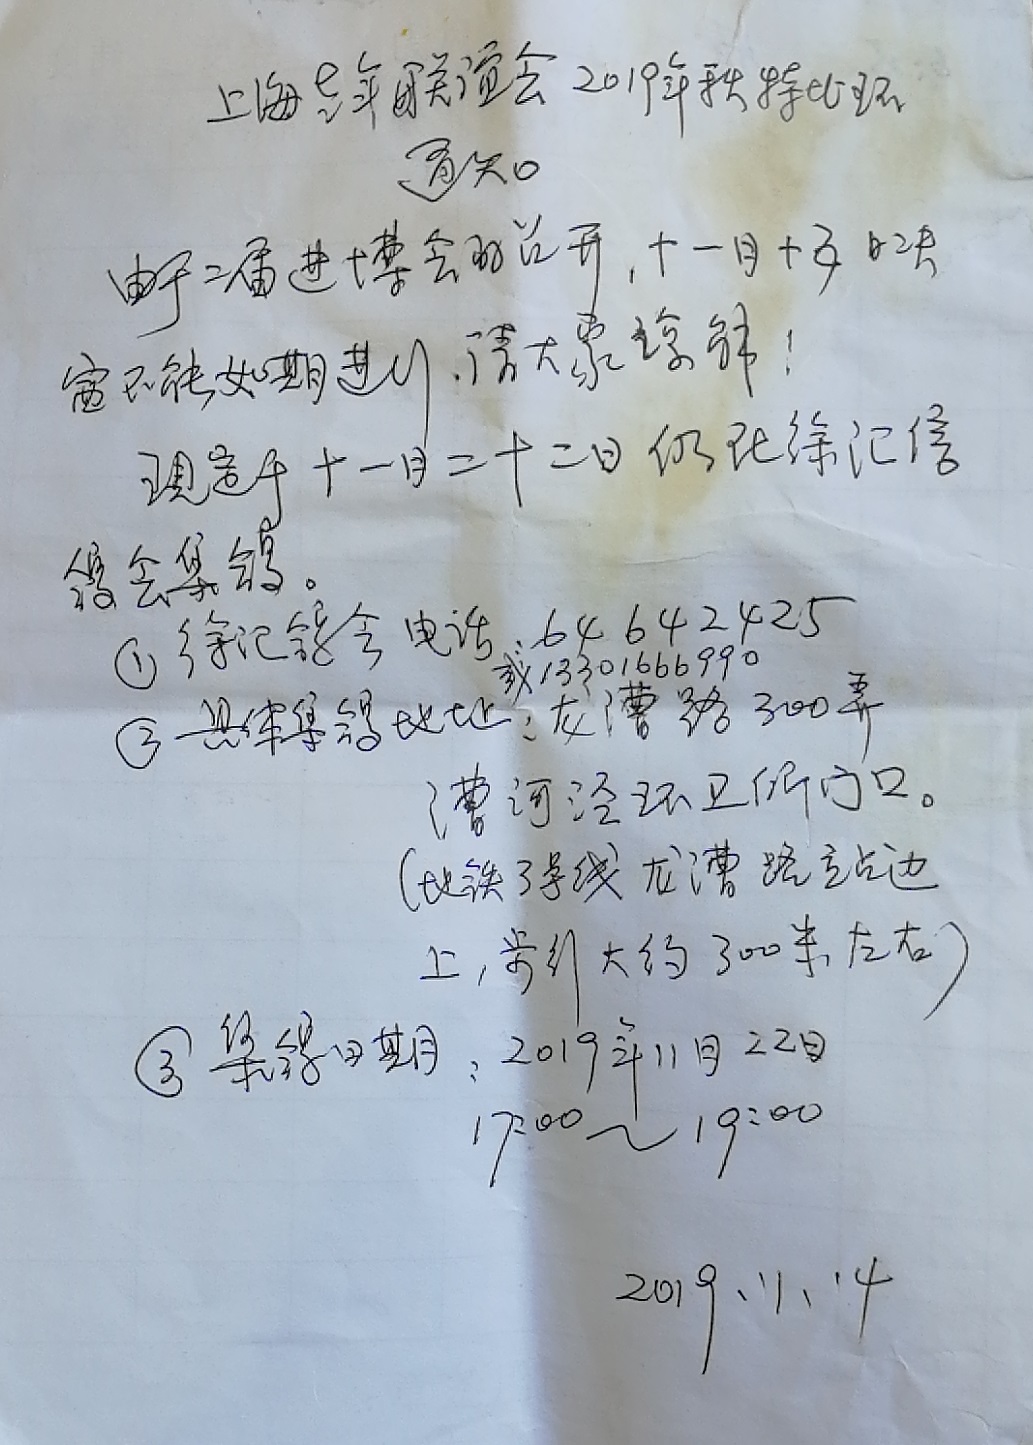 上海老年联谊会2019年秋特比环
通知
由于二届进博会的召开,十一月十五日决
赛不能如期进行.请大家谅解!
现定于十一月二十二日仍在徐汇信
鸽会集鸽。
①徐汇鸽会电话:64642425
或13301666990
②具体集鸽地址:龙漕路300弄
漕河泾环卫所门口。
(地铁3号线龙漕路站边
上,步行大约300米左右)
③集鸽日期:2019年11月22日
17:00~19:00
2019、11、14